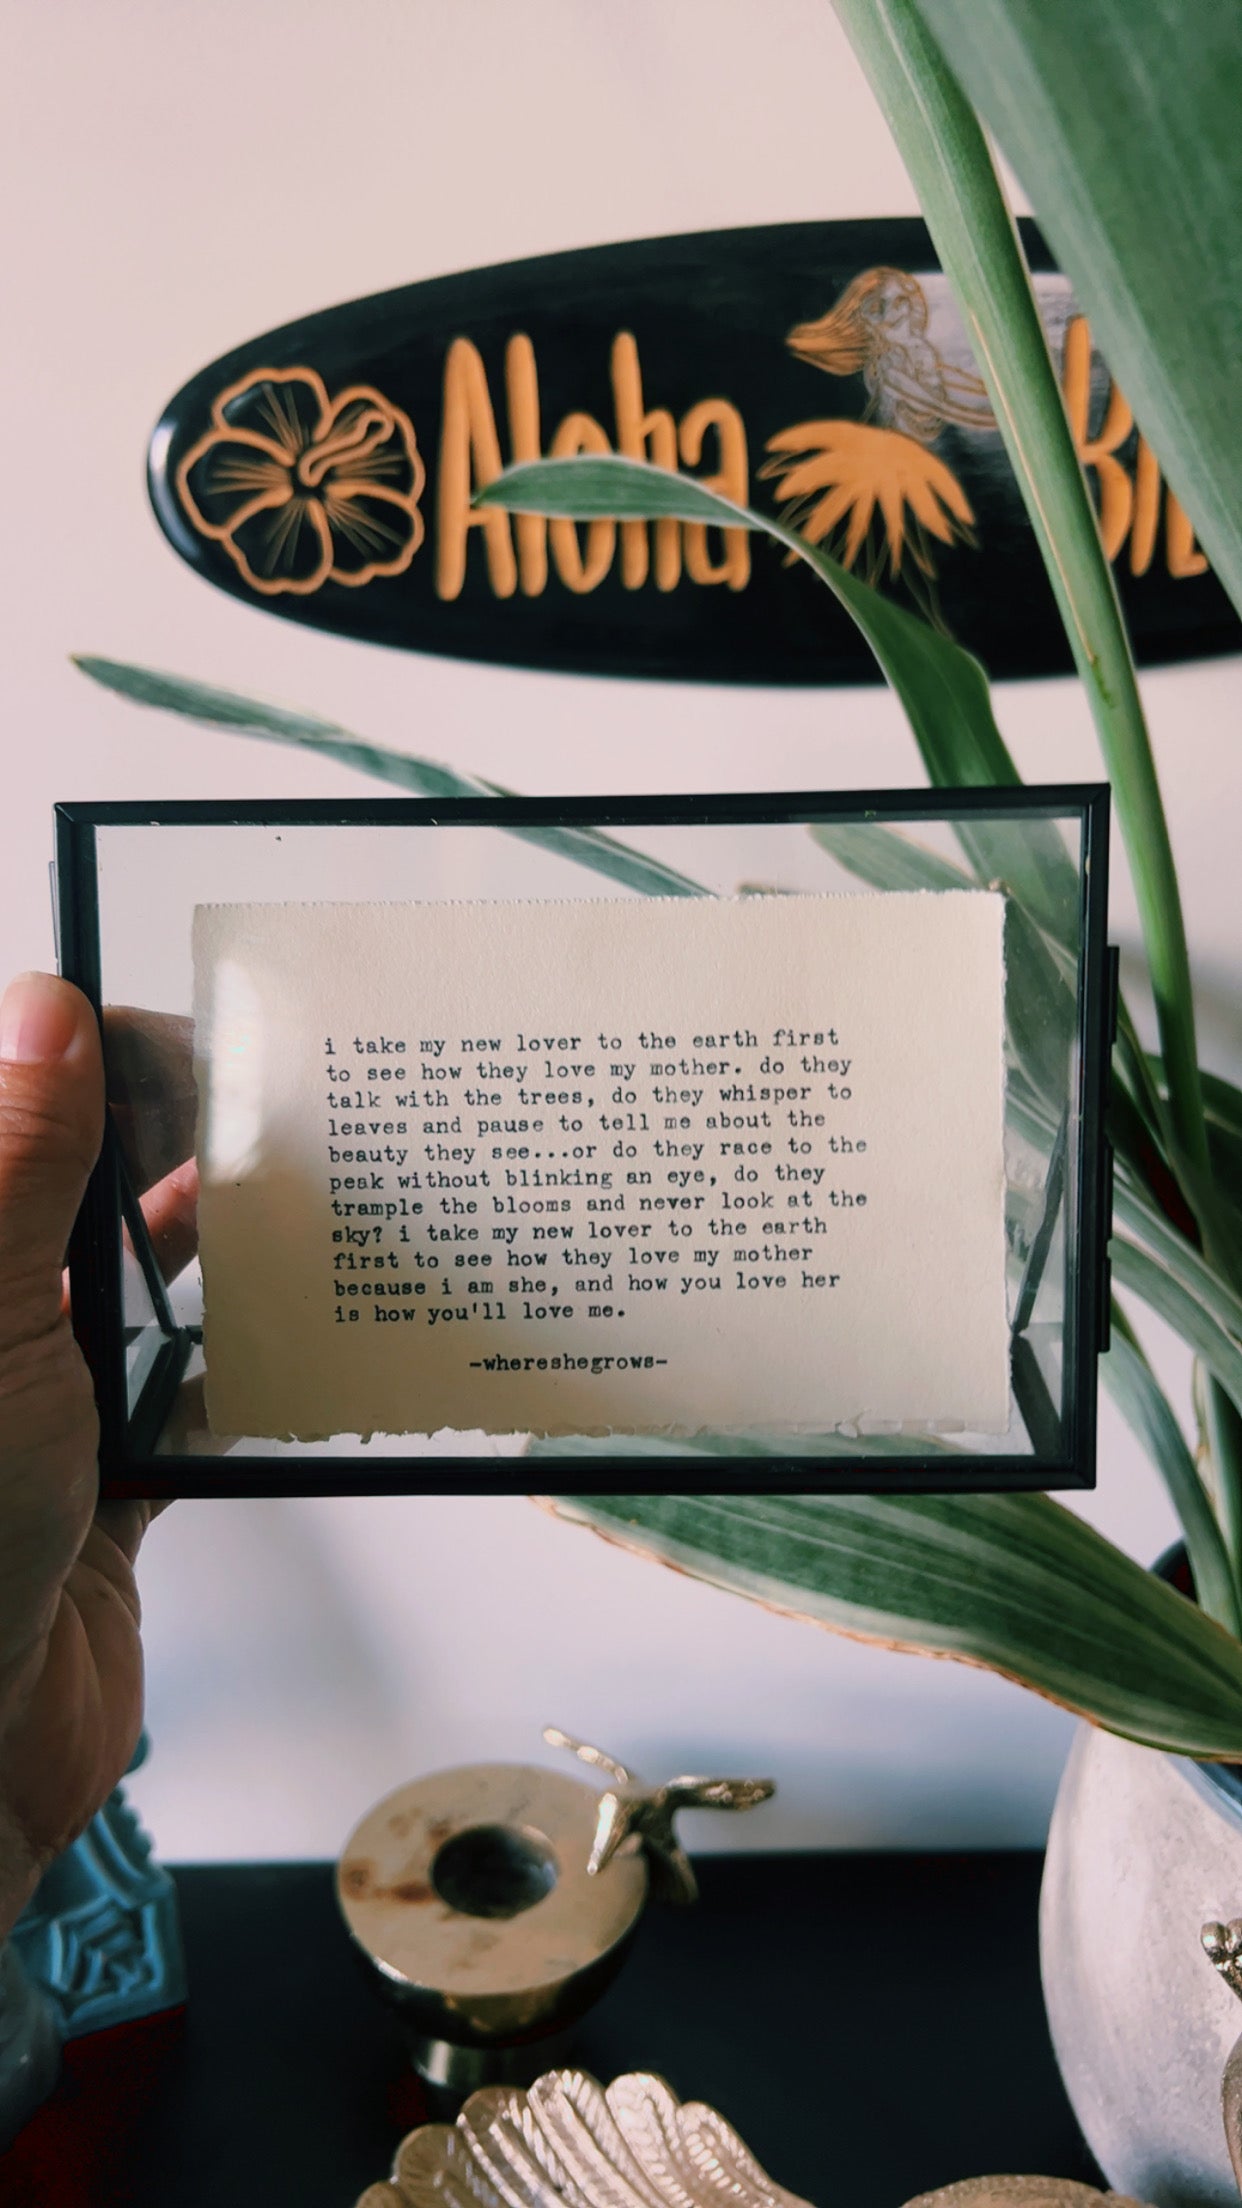 Aloha
i take my new lover to the earth first
to see how they love my mother. do they
talk with the trees, do they whisper to
leaves and pause to tell me about the
beauty they see...or do they race to the
peak without blinking an eye, do they
trample the blooms and never look at the
sky? i take my new lover to the earth
first to see how they love my mother
because i am she, and how you love her
is how you'll love me.
-whereshegrows-